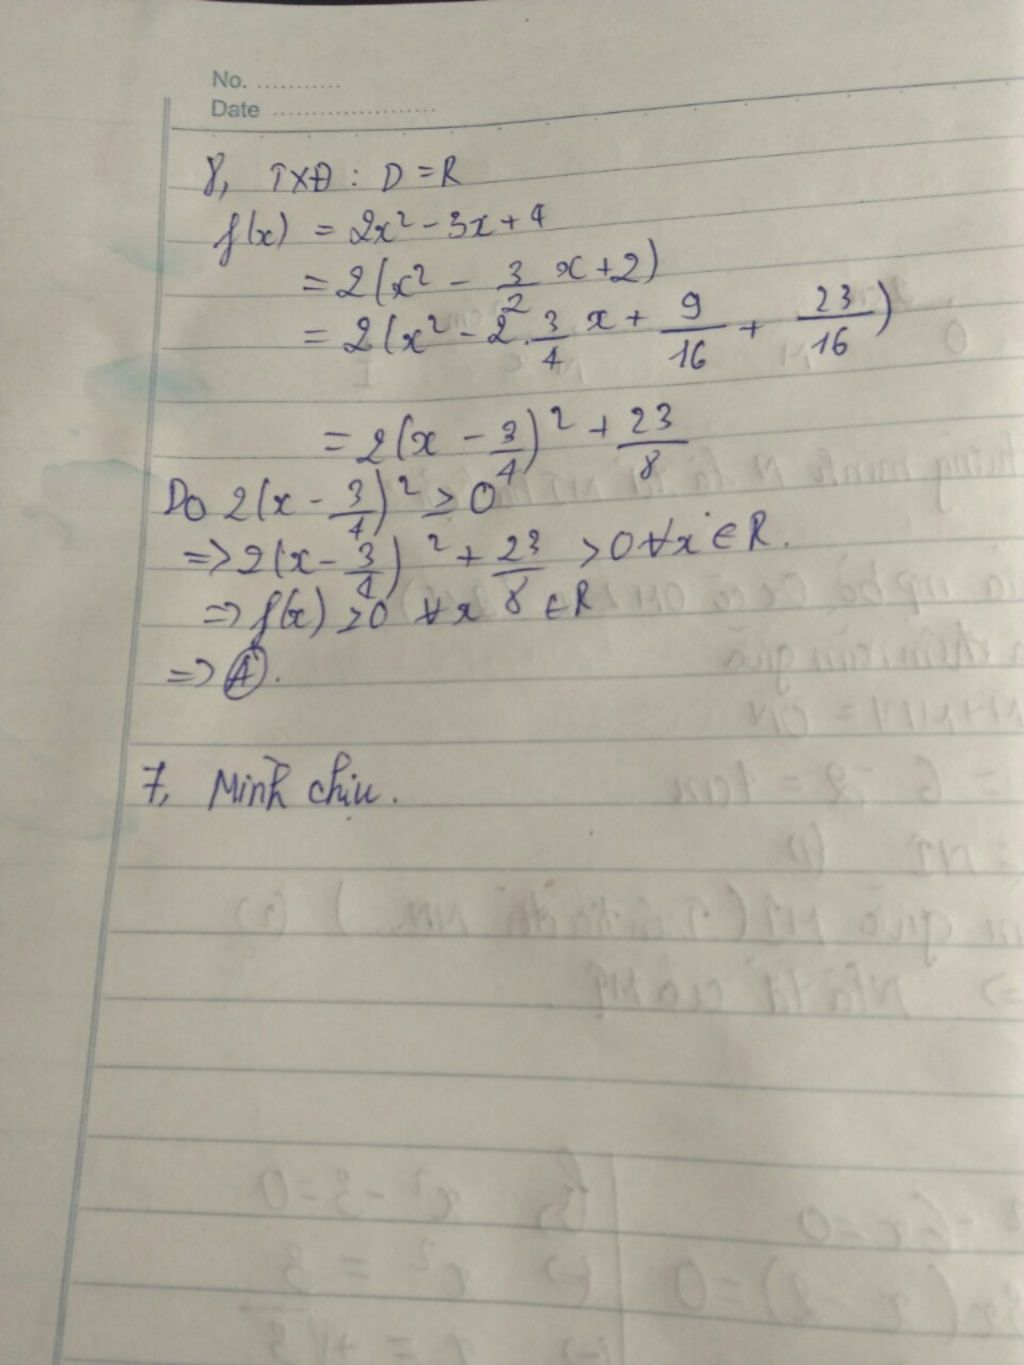 No. ...........
Date .....................
8, TXĐ : D = R
f(x) = 2x² - 3x + 4
= 2(x² - 3/2 x + 2)
= 2(x² - 2. 3/4 x + 9/16 + 23/16)
= 2(x - 3/4)² + 23/8
Do 2(x - 3/4)² ≥ 0
=> 2(x - 3/4)² + 23/8 > 0 ∀x ∈ R.
=> f(x) > 0 ∀x ∈ R
=> Ⓐ.
7, Mình chịu.